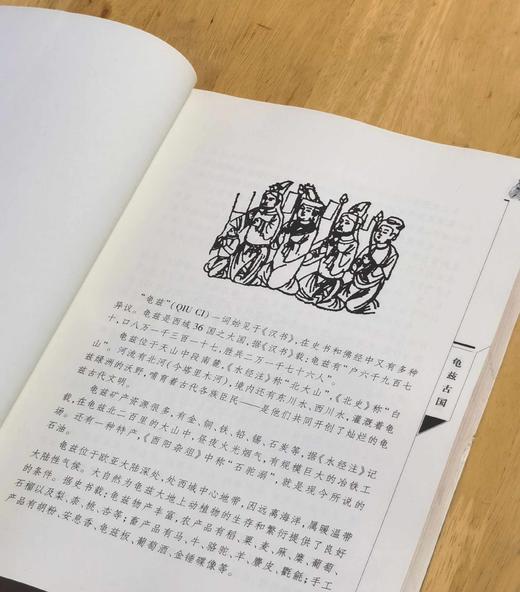 “龟兹”(QIU CI)一词始见于《汉书》，在史书和佛经中又有多种
异议。龟兹是西域36国之大国，据《汉书》载：龟兹有“户六千九百七
十，口八万一千三百一十七，胜兵二万一千七十六人”。
龟兹位于天山中段南麓，《水经注》称“北大山”，《北史》称“白
山”。河流有北河(今塔里木河)，境内还有东川水、西川水，灌溉着龟
兹绿洲的沃野，哺育着古代各族臣民——是他们共同开创了灿烂的龟
兹古代文明。
龟兹矿产资源很多，有金、铜、铁、铅、锡、石炭等，据《水经注》记
载，在龟兹北二百里的大山中，昼夜火光烟气，有规模巨大的冶铁工
场。还有一种特产，《酉阳杂俎》中称“石驼溺”，就是现今所说的
石油。
龟兹位于欧亚大陆深处，处西域中心地带，因远离海洋，属暖温带
大陆性气候。大自然为龟兹大地上动植物的生存和繁衍提供了良好
的条件。据史书载：龟兹物产丰富，农产品有稻、粟、麦、麻、糜、葡萄、
石榴以及梨、桃、杏等；畜产品有马、牛、骆驼、羊、麖皮、氍毹；手工
产品有胡粉、安息香、龟兹板、葡萄酒、金锤碟像等。
龟兹古国